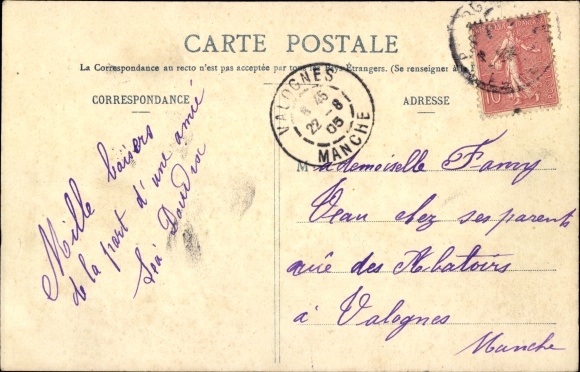 CARTE POSTALE
La Correspondance au recto n'est pas acceptée par tous les Pays Étrangers. (Se renseigner à
CORRESPONDANCE
ADRESSE
VALOGNES
8 45
22 - 8
05
MANCHE
10
Mille baisers
de la part d'une amie
Léa
Mademoiselle Fanny
Veau chez ses parents
rue des Abatoirs
à Valognes
Manche